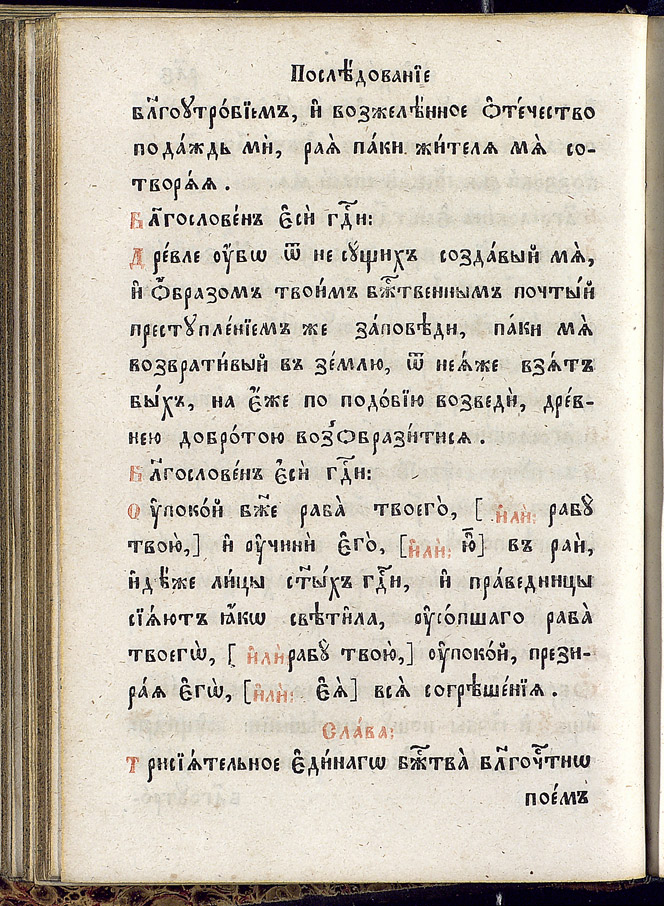 Послѣ́дованїе
бл҃гоꙋтро́бїемъ, и҆ возжелѣ́нное ѻ҆те́чество
пода́ждь мѝ, раѧ̀ па́ки жи́телѧ мѧ̀ со-
творѧ́ѧ .
Бл҃гослове́нъ є҆сѝ гдⷭ҇и:
Дре́вле ᲂу҆́бѡ ѿ не сꙋ́щихъ созда́вый мѧ̀,
и҆ ѻ҆́бразомъ твои́мъ бжⷭ҇твеннымъ почты́й
престꙋпле́нїемъ же за́повѣди, па́ки мѧ̀
возврати́вый въ зе́млю, ѿ неѧ́же взѧ́тъ
бы́хъ, на є҆́же по подо́бїю возведѝ, дре́в-
нею добро́тою воз̾ѻбрази́тисѧ .
Бл҃гослове́нъ є҆сѝ гдⷭ҇и:
Ѹ҆поко́й бж҃е раба̀ твоего̀, [ и҆лѝ: рабꙋ̀
твою̀,] и҆ ᲂу҆чинѝ є҆го̀, [и҆лѝ: ю҆̀] въ раѝ,
и҆дѣ́же ли́цы ст҃ы́хъ гдⷭ҇и, и҆ пра́ведницы
сїѧ́ютъ ꙗ҆́кѡ свѣти̑ла, ᲂу҆со́пшаго раба̀
твоегѡ̀, [ и҆лѝ рабꙋ̀ твою̀,] ᲂу҆поко́й, прези-
ра́ѧ є҆гѡ̀, [и҆лѝ: є҆ѧ̀] всѧ̑ согрѣшє́нїѧ .
Сла́ва:
Трисїѧ́тельное є҆ди́нагѡ бжⷭ҇тва̀ бл҃гоче́тнѡ
пое́мъ